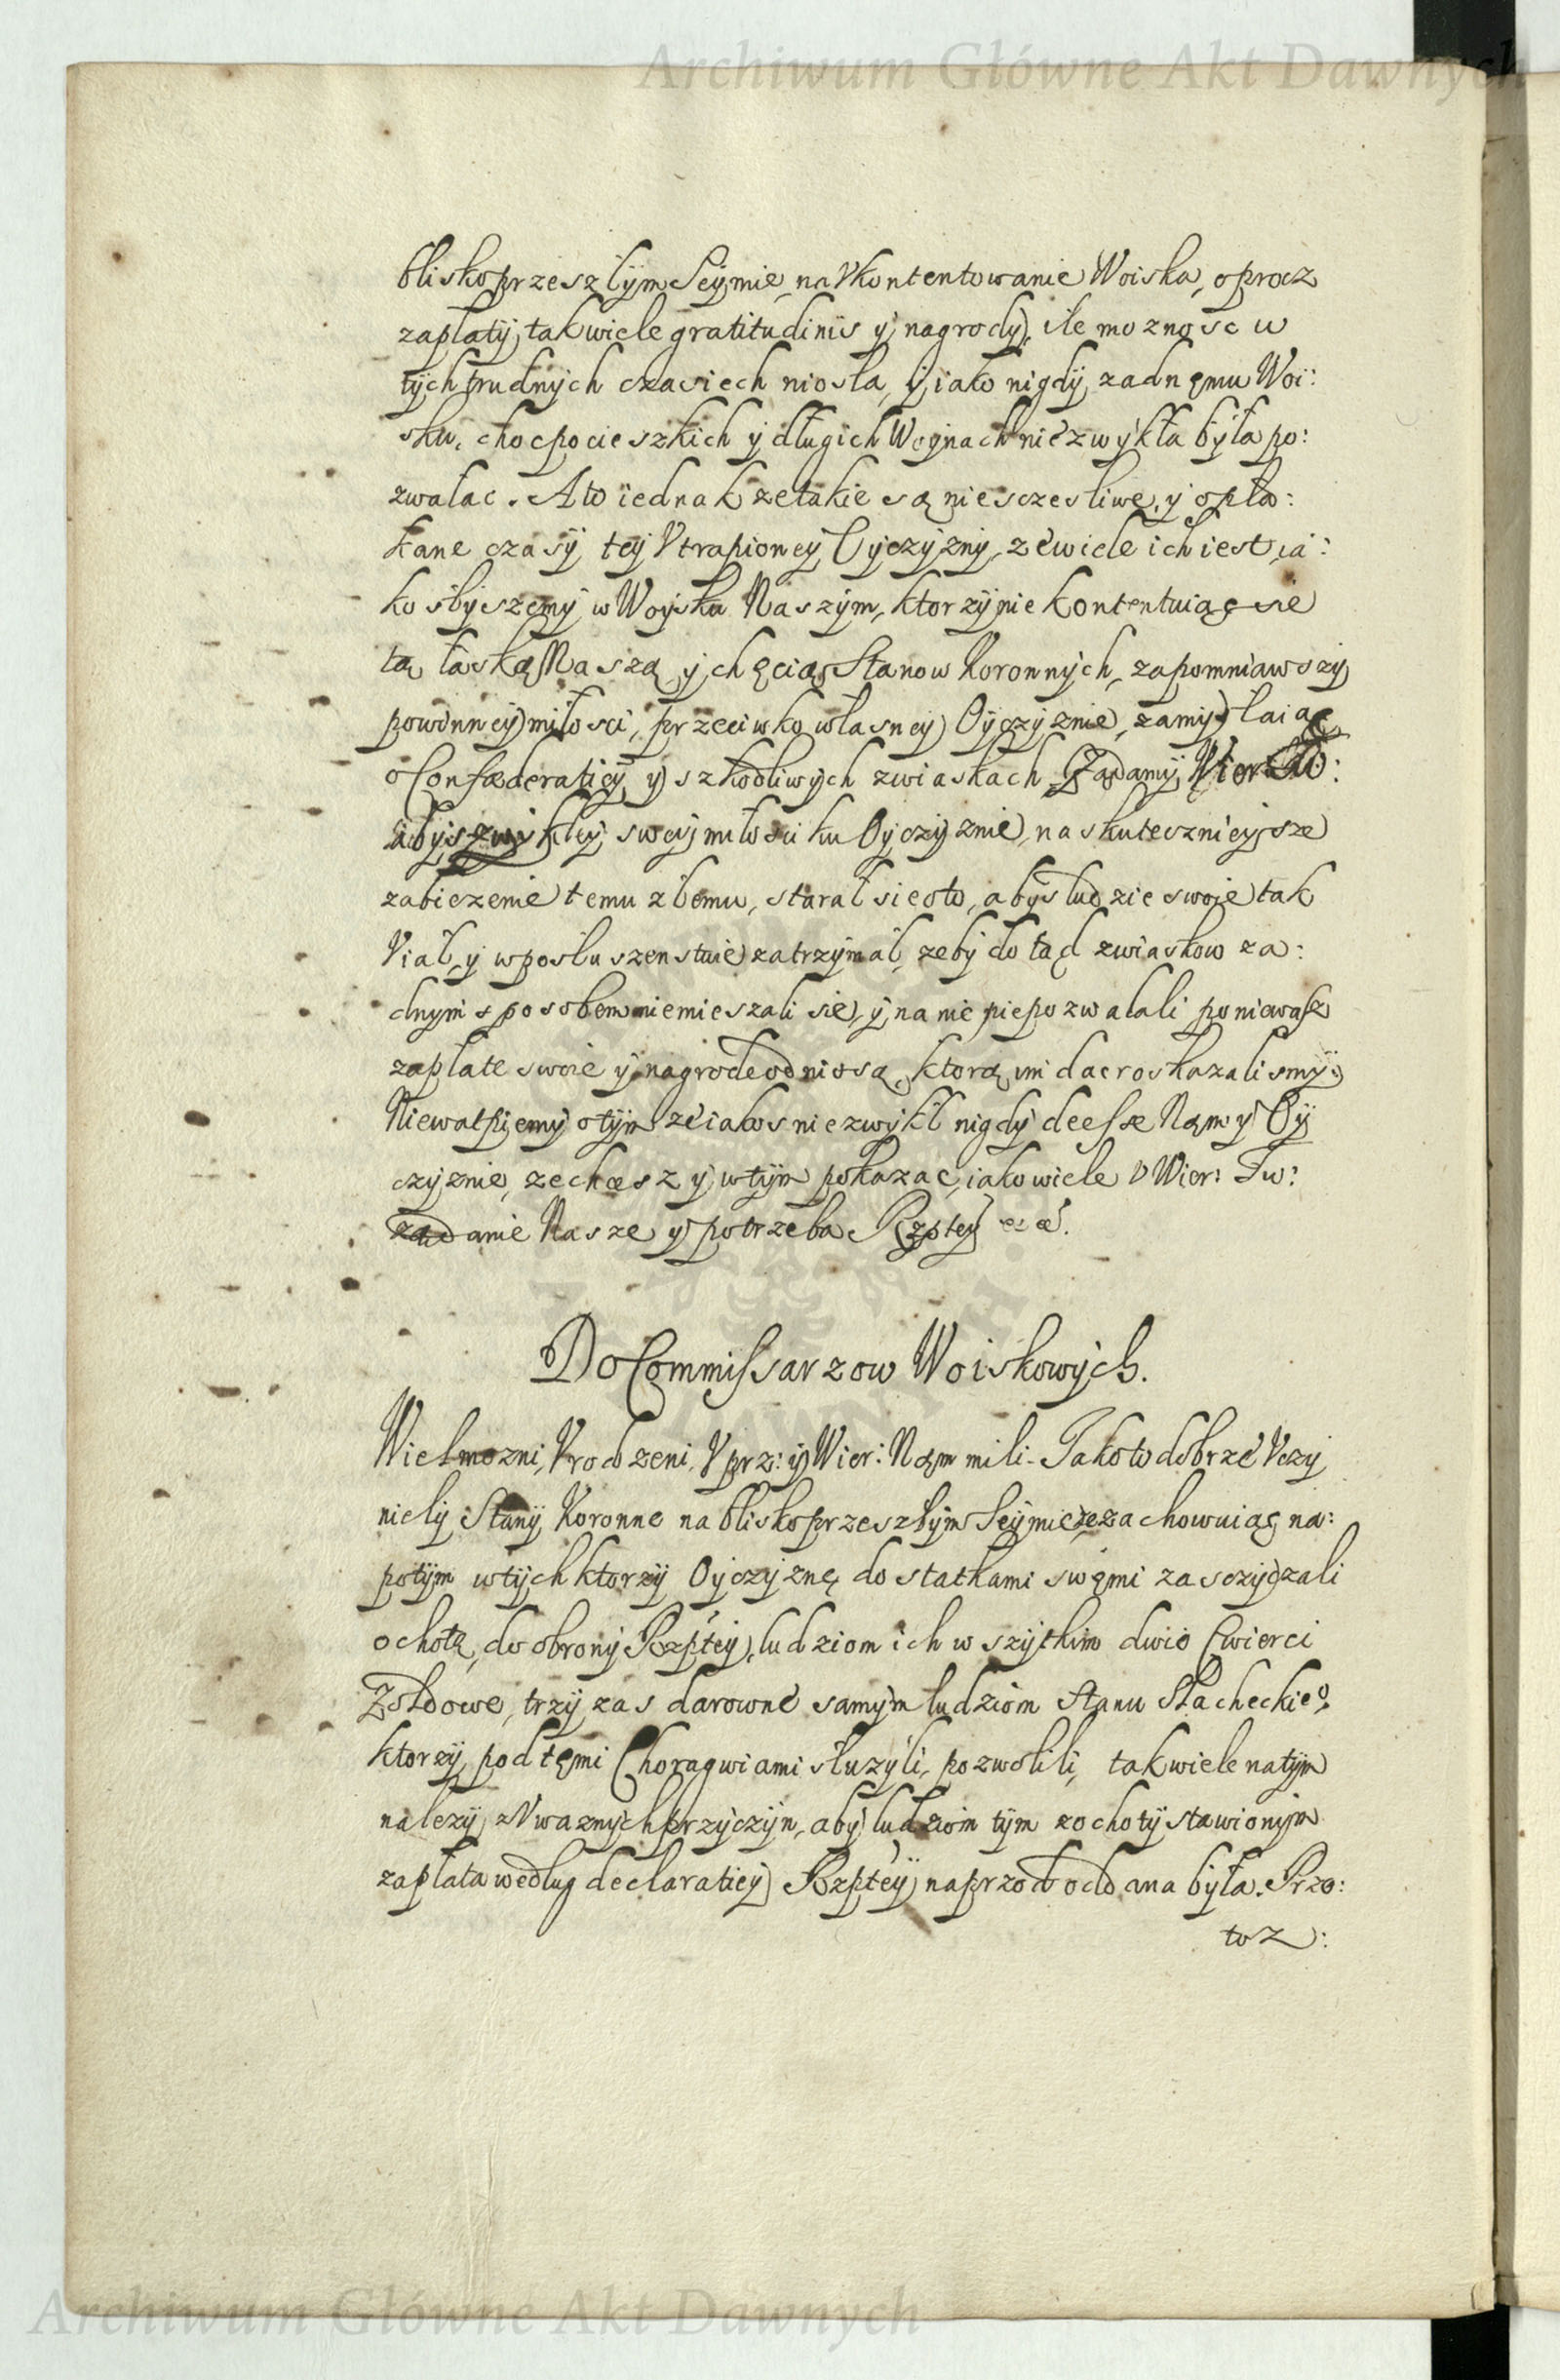 Archiwum Główne Akt Dawnych
blisko przeszłym Seymie, na Vkontentowanie Woiska, oprocz
zapłaty, tak wiele gratitudinis y nagrody, ile moznosc w
tych trudnych czasiech niosła, y iako nigdy zadnemu Woi:
sku, choc po cieszkich y długich Woynach nie zwykła była po:
zwalac. A to iednak ze takie są niesczesliwe, y opła:
kane czasy tey Vtrapioney Oyczyzny, ze wiele ich iest, ia:
ko słyszemy w Woysku Naszym, ktorzy nie kontentuiąc sie
tą łaską Naszą y chęcią Stanow Koronnych, zapomniawszy
powinney miłosci, przeciwko własney Oyczyznie, zamyslaią
o Confœderatiey y szkodliwych zwiaskach Ządamy Vier: Tw:
abys zwykłey swey miłosci ku Oyczyznie, na skutecznieysze
zabiezenie temu złemu, starał sie o to, abys ludzie swoie tak
Viał, y w posłuszenstwie zatrzymał, zeby do tąd zwiaskow za:
dnym sposobem nie mieszali sie, y na nie nie pozwalali poniewasz
zapłate swoie y nagrode odniosą, ktorą im dac roskazalismy.
Niewatpiemy o tym ze iakos nie zwykł nigdy deesse Nam y Oy
czyznie, zechcesz y w tym pokazac, iako wiele v Wier: Tw:
ządanie Nasze y potrzeba Rzptey etc.
Do Commissarzow Woiskowych.
Wielmozni, Vrodzeni, Vprz: y Wier: Nam mili. Jako to dobrze Vczy
niely Stany Koronne na blisko przeszłym Seymie, ze zachowuiąc na:
potym w tych ktorzy Oyczyznę dostatkami swemi zasczyczali
ochotę, do obrony Rzptey, ludziom ich wszytkim dwie Cwierci
Zołdowe, trzy zas darowne samym ludziom Stanu Slacheckieo,
ktorzy pod temi Choragwiami słuzyli, pozwolili, tak wiele na tym
nalezy z Vwaznych przyczyn, aby ludziom tym z ochoty stawionym
zapłata według declaratiey Rzptey naprzod oddana była. Prze:
toz:
Archiwum Główne Akt Dawnych